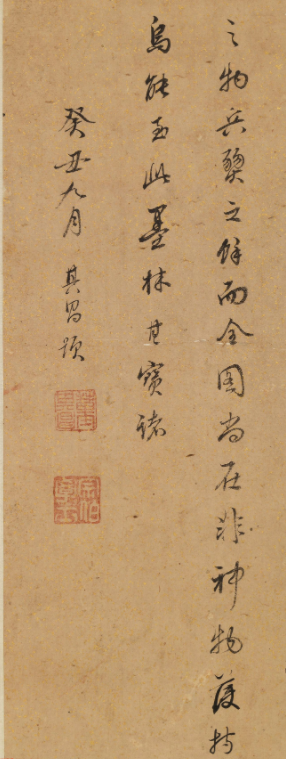 之物兵燹之餘而全圖尚在非神物護持
烏能至此墨林其寶諸
癸丑九月 其昌題